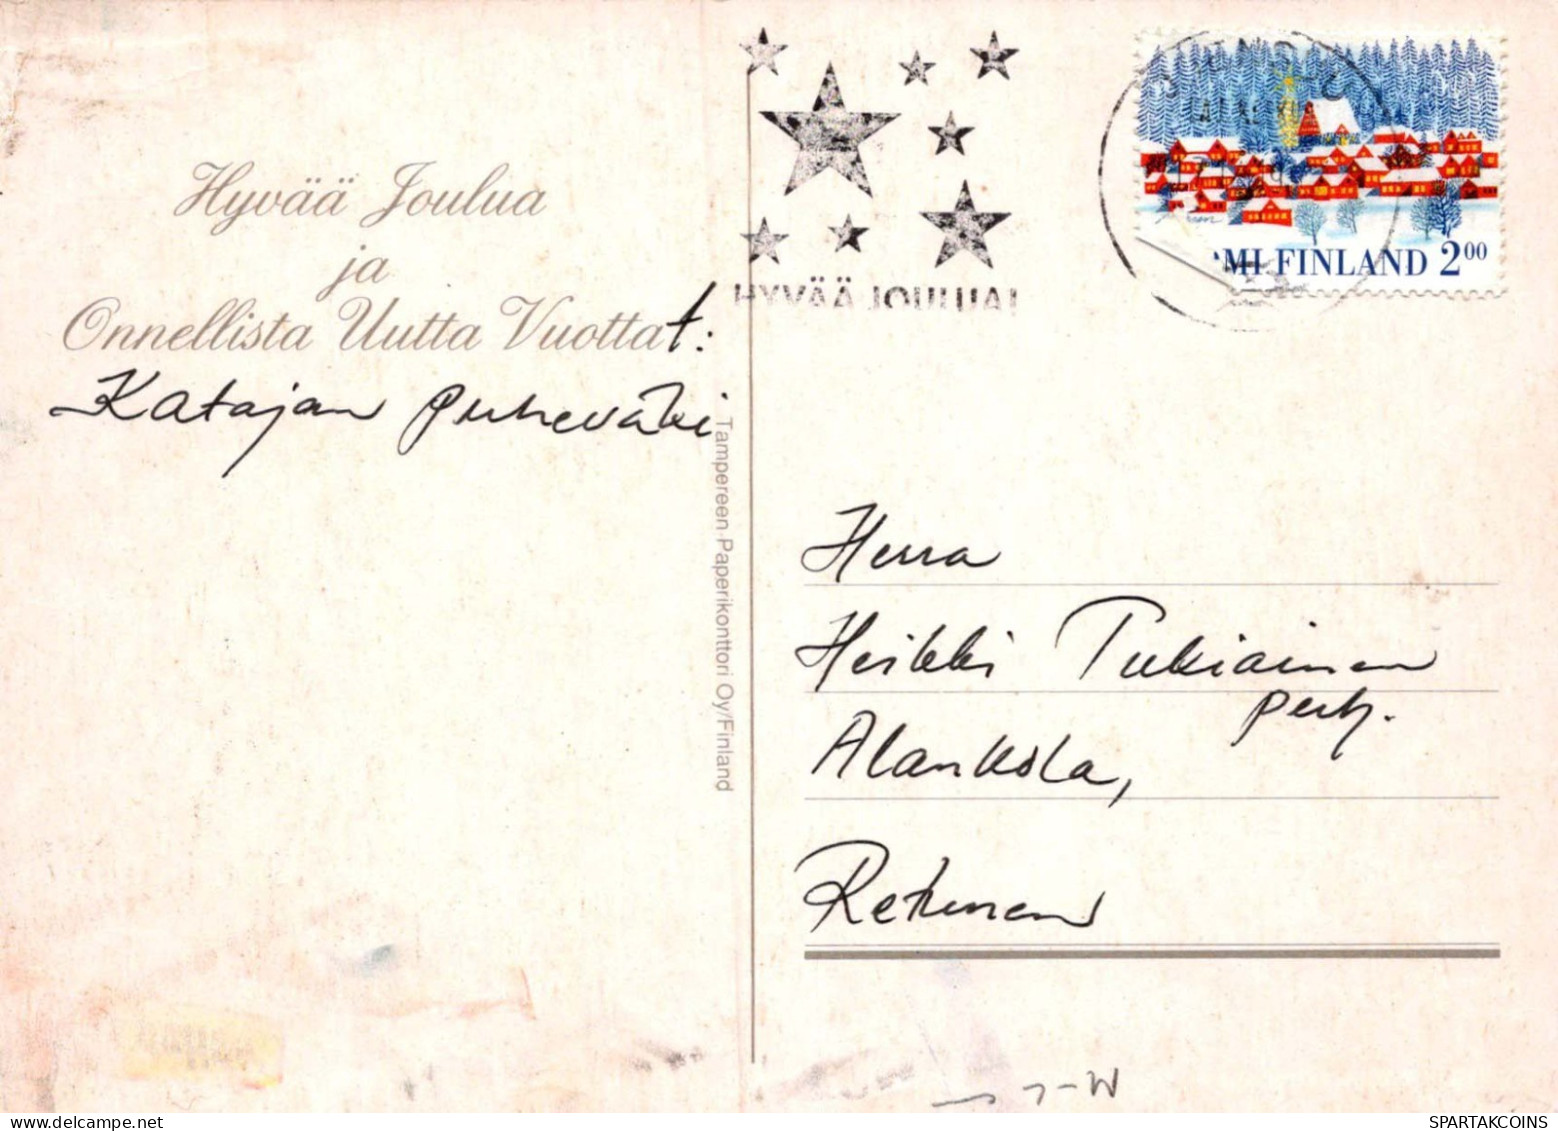 Hyvää Joulua
ja
Onnellista Uutta Vuotta t:
Katajan puheväki
Tampereen Paperikonttori Oy/Finland
HYVÄÄ JOULUA!
MI FINLAND 200
Herra
Heikki Tukiainen
perh.
Alankola,
Retunen
SPARTAKCOINS